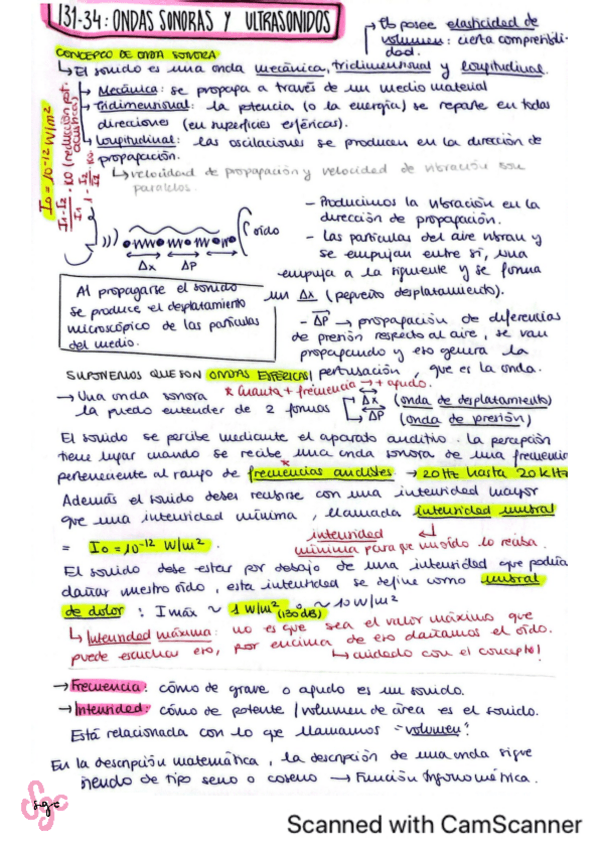 T31-34: ONDAS SONORAS Y ULTRASONIDOS
→ Tb posee elasticidad de
volumen: cierta comprensibili-
dad.
CONCEPTO DE ONDA SONORA
↳ El sonido es una onda mecánica, tridimensional y longitudinal.
↳ Mecánica: se propaga a través de un medio material
→ Tridimensional: la potencia (o la energía) se reparte en todas
direcciones (en superficies esféricas).
↳ Longitudinal: las oscilaciones se producen en la dirección de
propagación.
↳ velocidad de propagación y velocidad de vibración son
paralelos.
I₀ = 10⁻¹² W/m²
oído
Δx ΔP
- Producimos la vibración en la
dirección de propagación.
- Las partículas del aire vibran y
se empujan entre sí, una
empuja a la siguiente y se forma
un Δx (pequeño desplazamiento).
- ΔP → propagación de diferencias
de presión respecto al aire, se van
propagando y eso genera la
perturbación, que es la onda.
Al propagarse el sonido
se produce el desplazamiento
microscópico de las partículas
del medio.
SUPONEMOS QUE SON ONDAS ESFÉRICAS
* Cuanta + frecuencia → + agudo.
→ Una onda sonora
la puedo entender de 2 formas
Δx (onda de desplazamiento)
ΔP (onda de presión)
El sonido se percibe mediante el aparato auditivo. La percepción
tiene lugar cuando se recibe una onda sonora de una frecuencia
perteneciente al rango de frecuencias audibles. → 20 Hz hasta 20 kHz
Además el sonido debes recibirse con una intensidad mayor
que una intensidad mínima, llamada intensidad umbral
= I₀ = 10⁻¹² W/m².
intensidad
mínima para que un oído lo reciba.
El sonido debe estar por debajo de una intensidad que podría
dañar nuestro oído, esta intensidad se define como umbral
de dolor: I máx ~ 1 W/m² (130 dB) ~ 10 W/m²
↳ Intensidad máxima: no es que sea el valor máximo que
puede escuchar eso, por encima de eso dañamos el oído.
↳ cuidado con el concepto!
→ Frecuencia: cómo de grave o agudo es un sonido.
→ Intensidad: cómo de potente / volumen de área es el sonido.
Está relacionada con lo que llamamos "volumen"
En la descripción matemática, la descripción de una onda sigue
siendo de tipo seno o coseno → Función trigonométrica.
sgc
Scanned with CamScanner